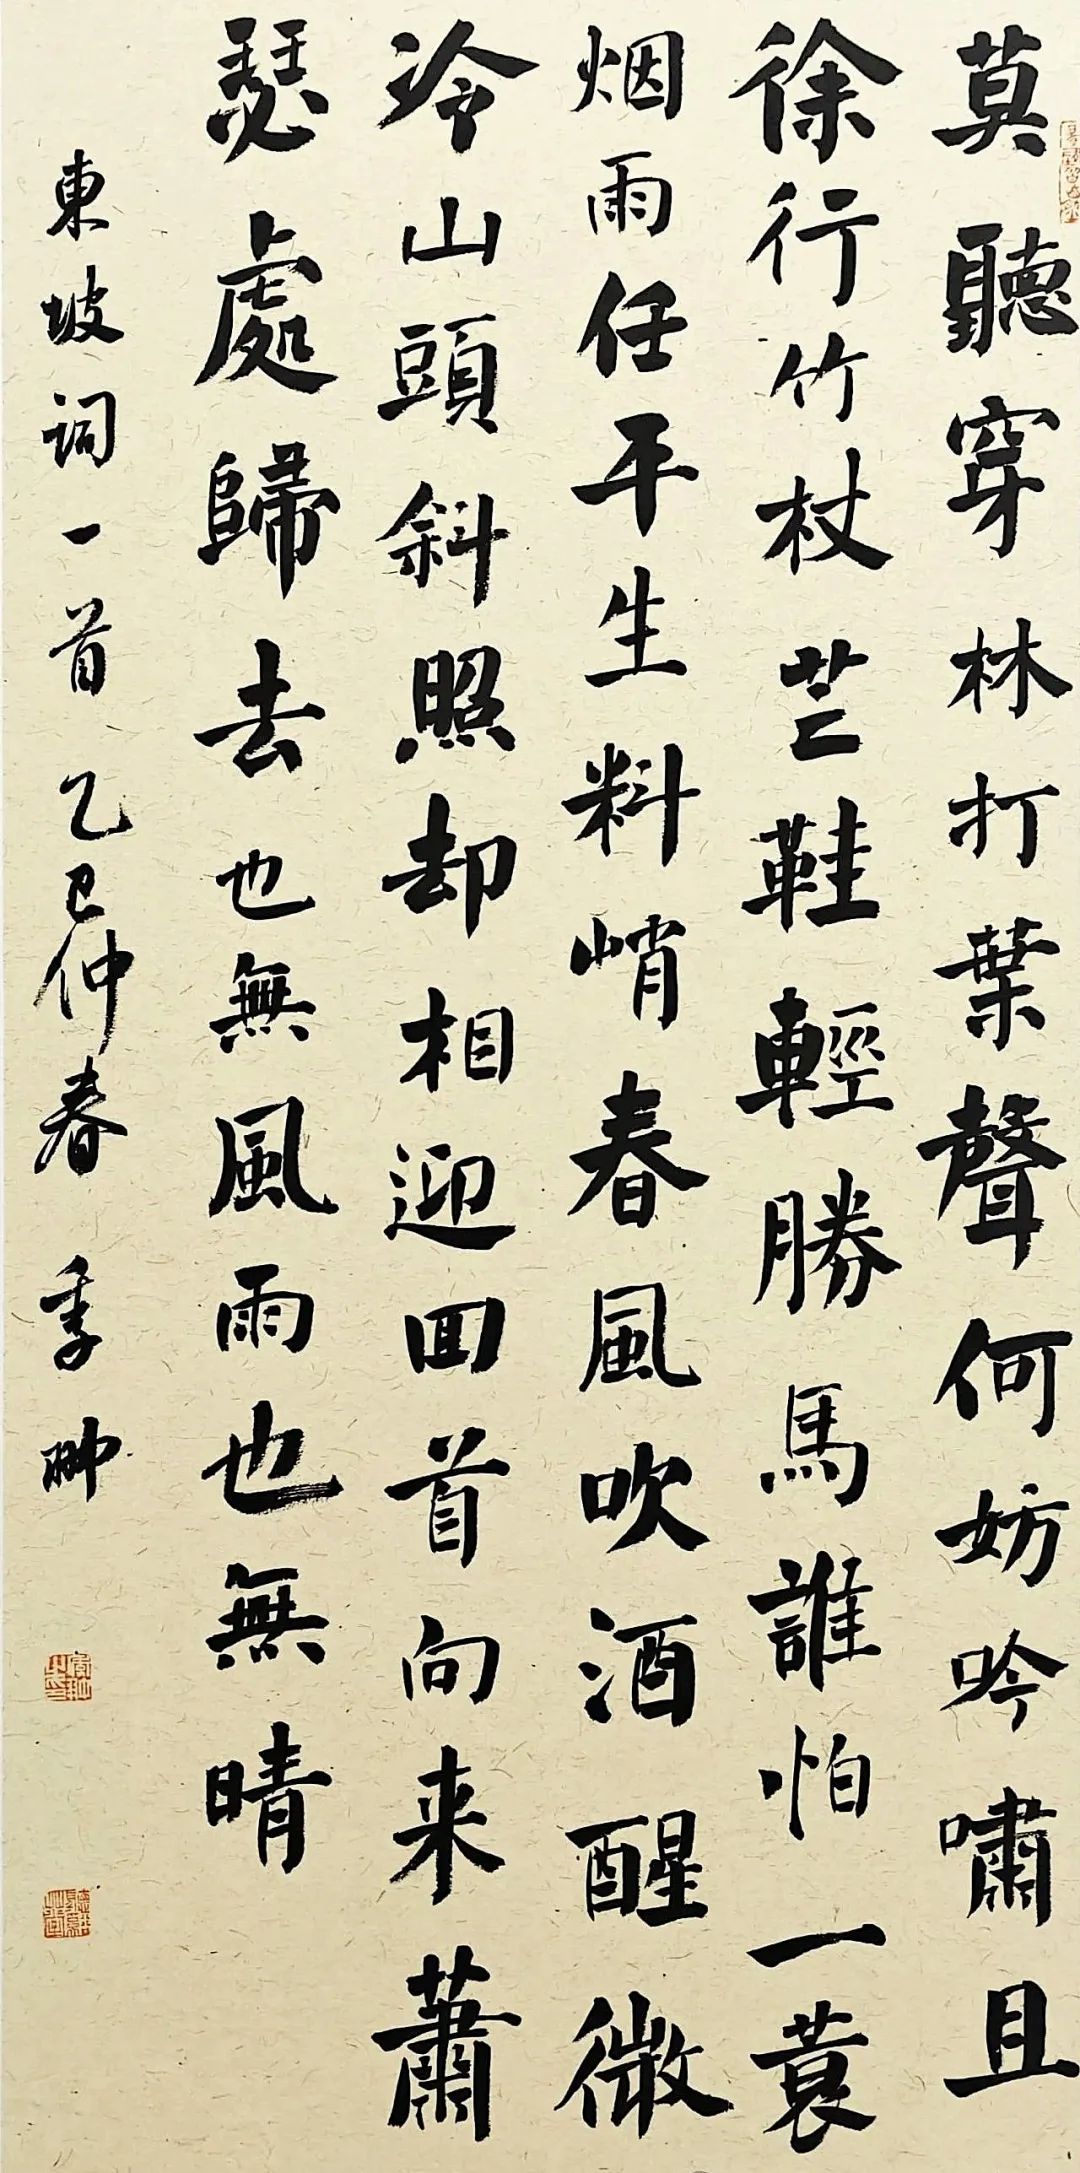 莫聽穿林打葉聲何妨吟嘯且
徐行竹杖芒鞋輕勝馬誰怕一蓑
烟雨任平生料峭春風吹酒醒微
冷山頭斜照却相迎回首向来蕭
瑟處歸去也無風雨也無晴
東坡词一首乙巳仲春季